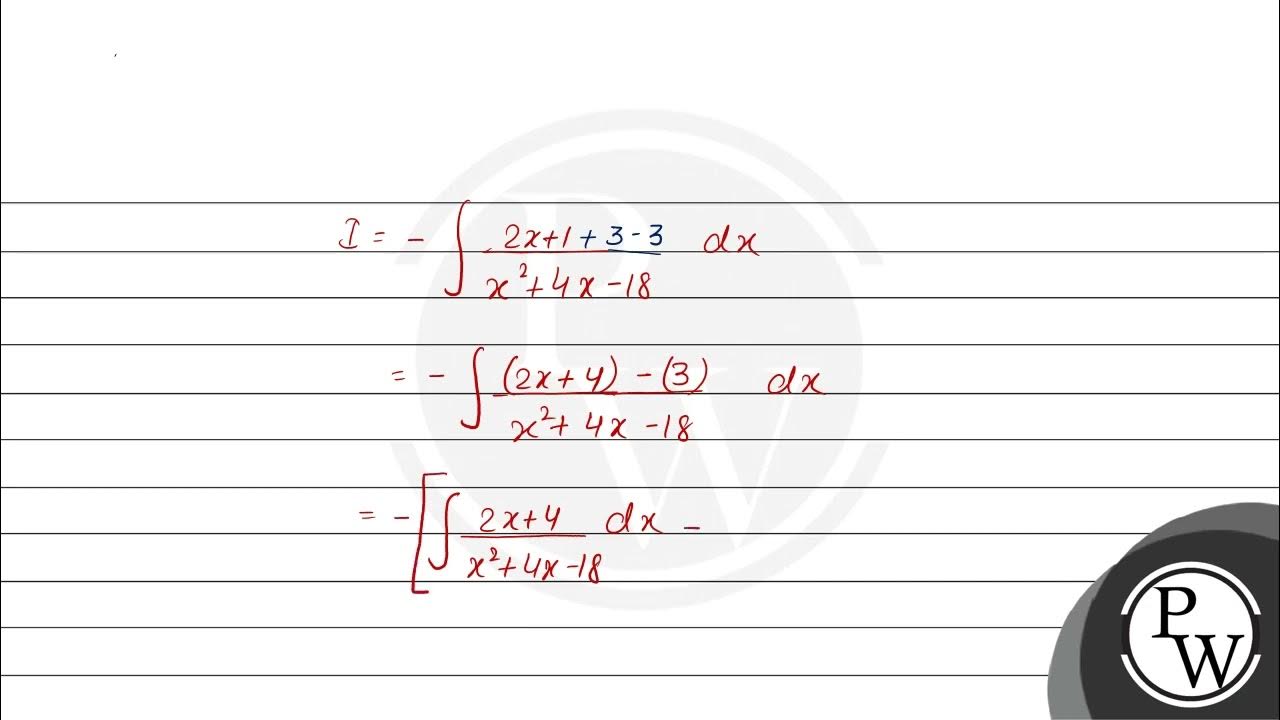 I = - ∫ (2x+1+3-3)/(x²+4x-18) dx
= - ∫ ((2x+4) - (3))/(x²+4x-18) dx
= - [ ∫ (2x+4)/(x²+4x-18) dx -
PW